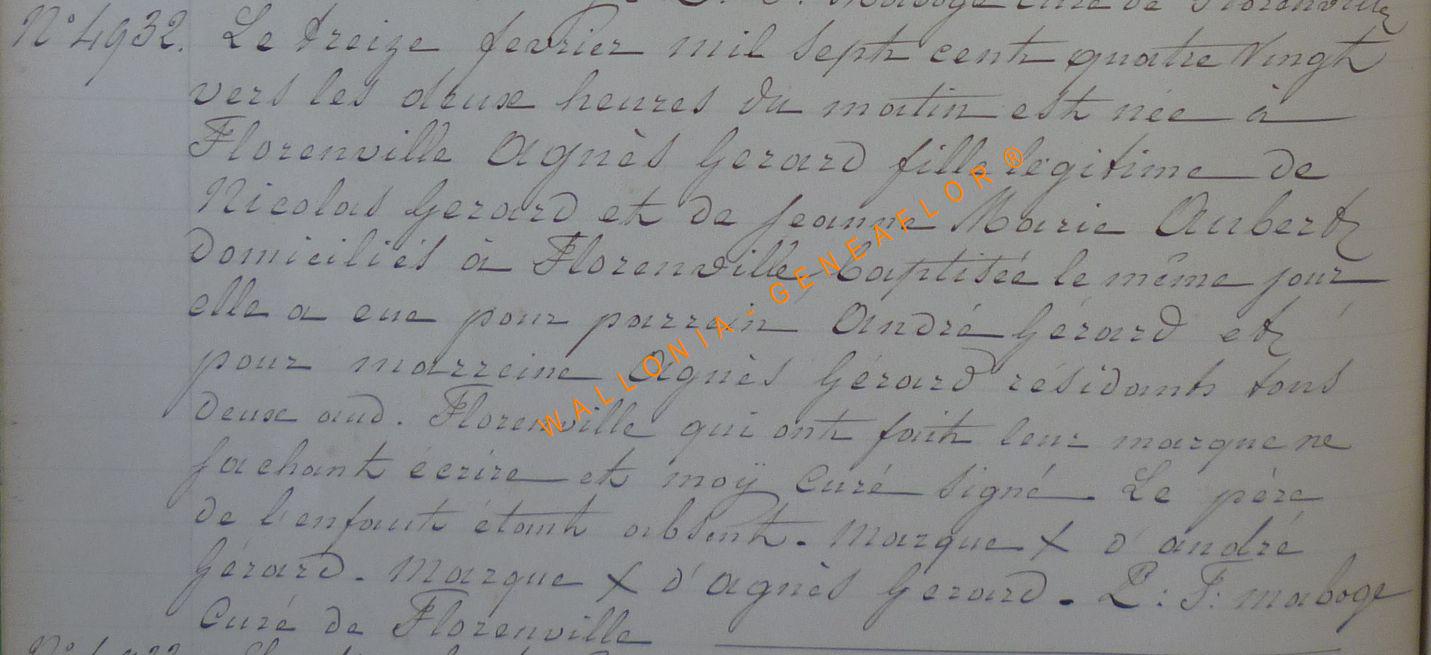 Maboge curé de Florenville
N° 4932. Le treize fevrier mil sept cent quatre Vingt
vers les deux heures du matin est née à
Florenville Agnès Gerard fille legitime de
Nicolas Gerard et de Jeanne Marie Aubert
Domiciliés à Florenville, baptisée le même jour
elle a eue pour parrein André Gérard et
pour marreine Agnès Gérard résidants tous
Deux aud. Florenville qui ont fait leur marque ne
sachant écrire et moÿ Curé signé. Le père
de l'enfant étant absent. Marque X d'andré
Gérard. Marque X d'agnès Gerard. P: F: maboge
Curé de Florenville
WALLONIA - GENEAFLOR ®